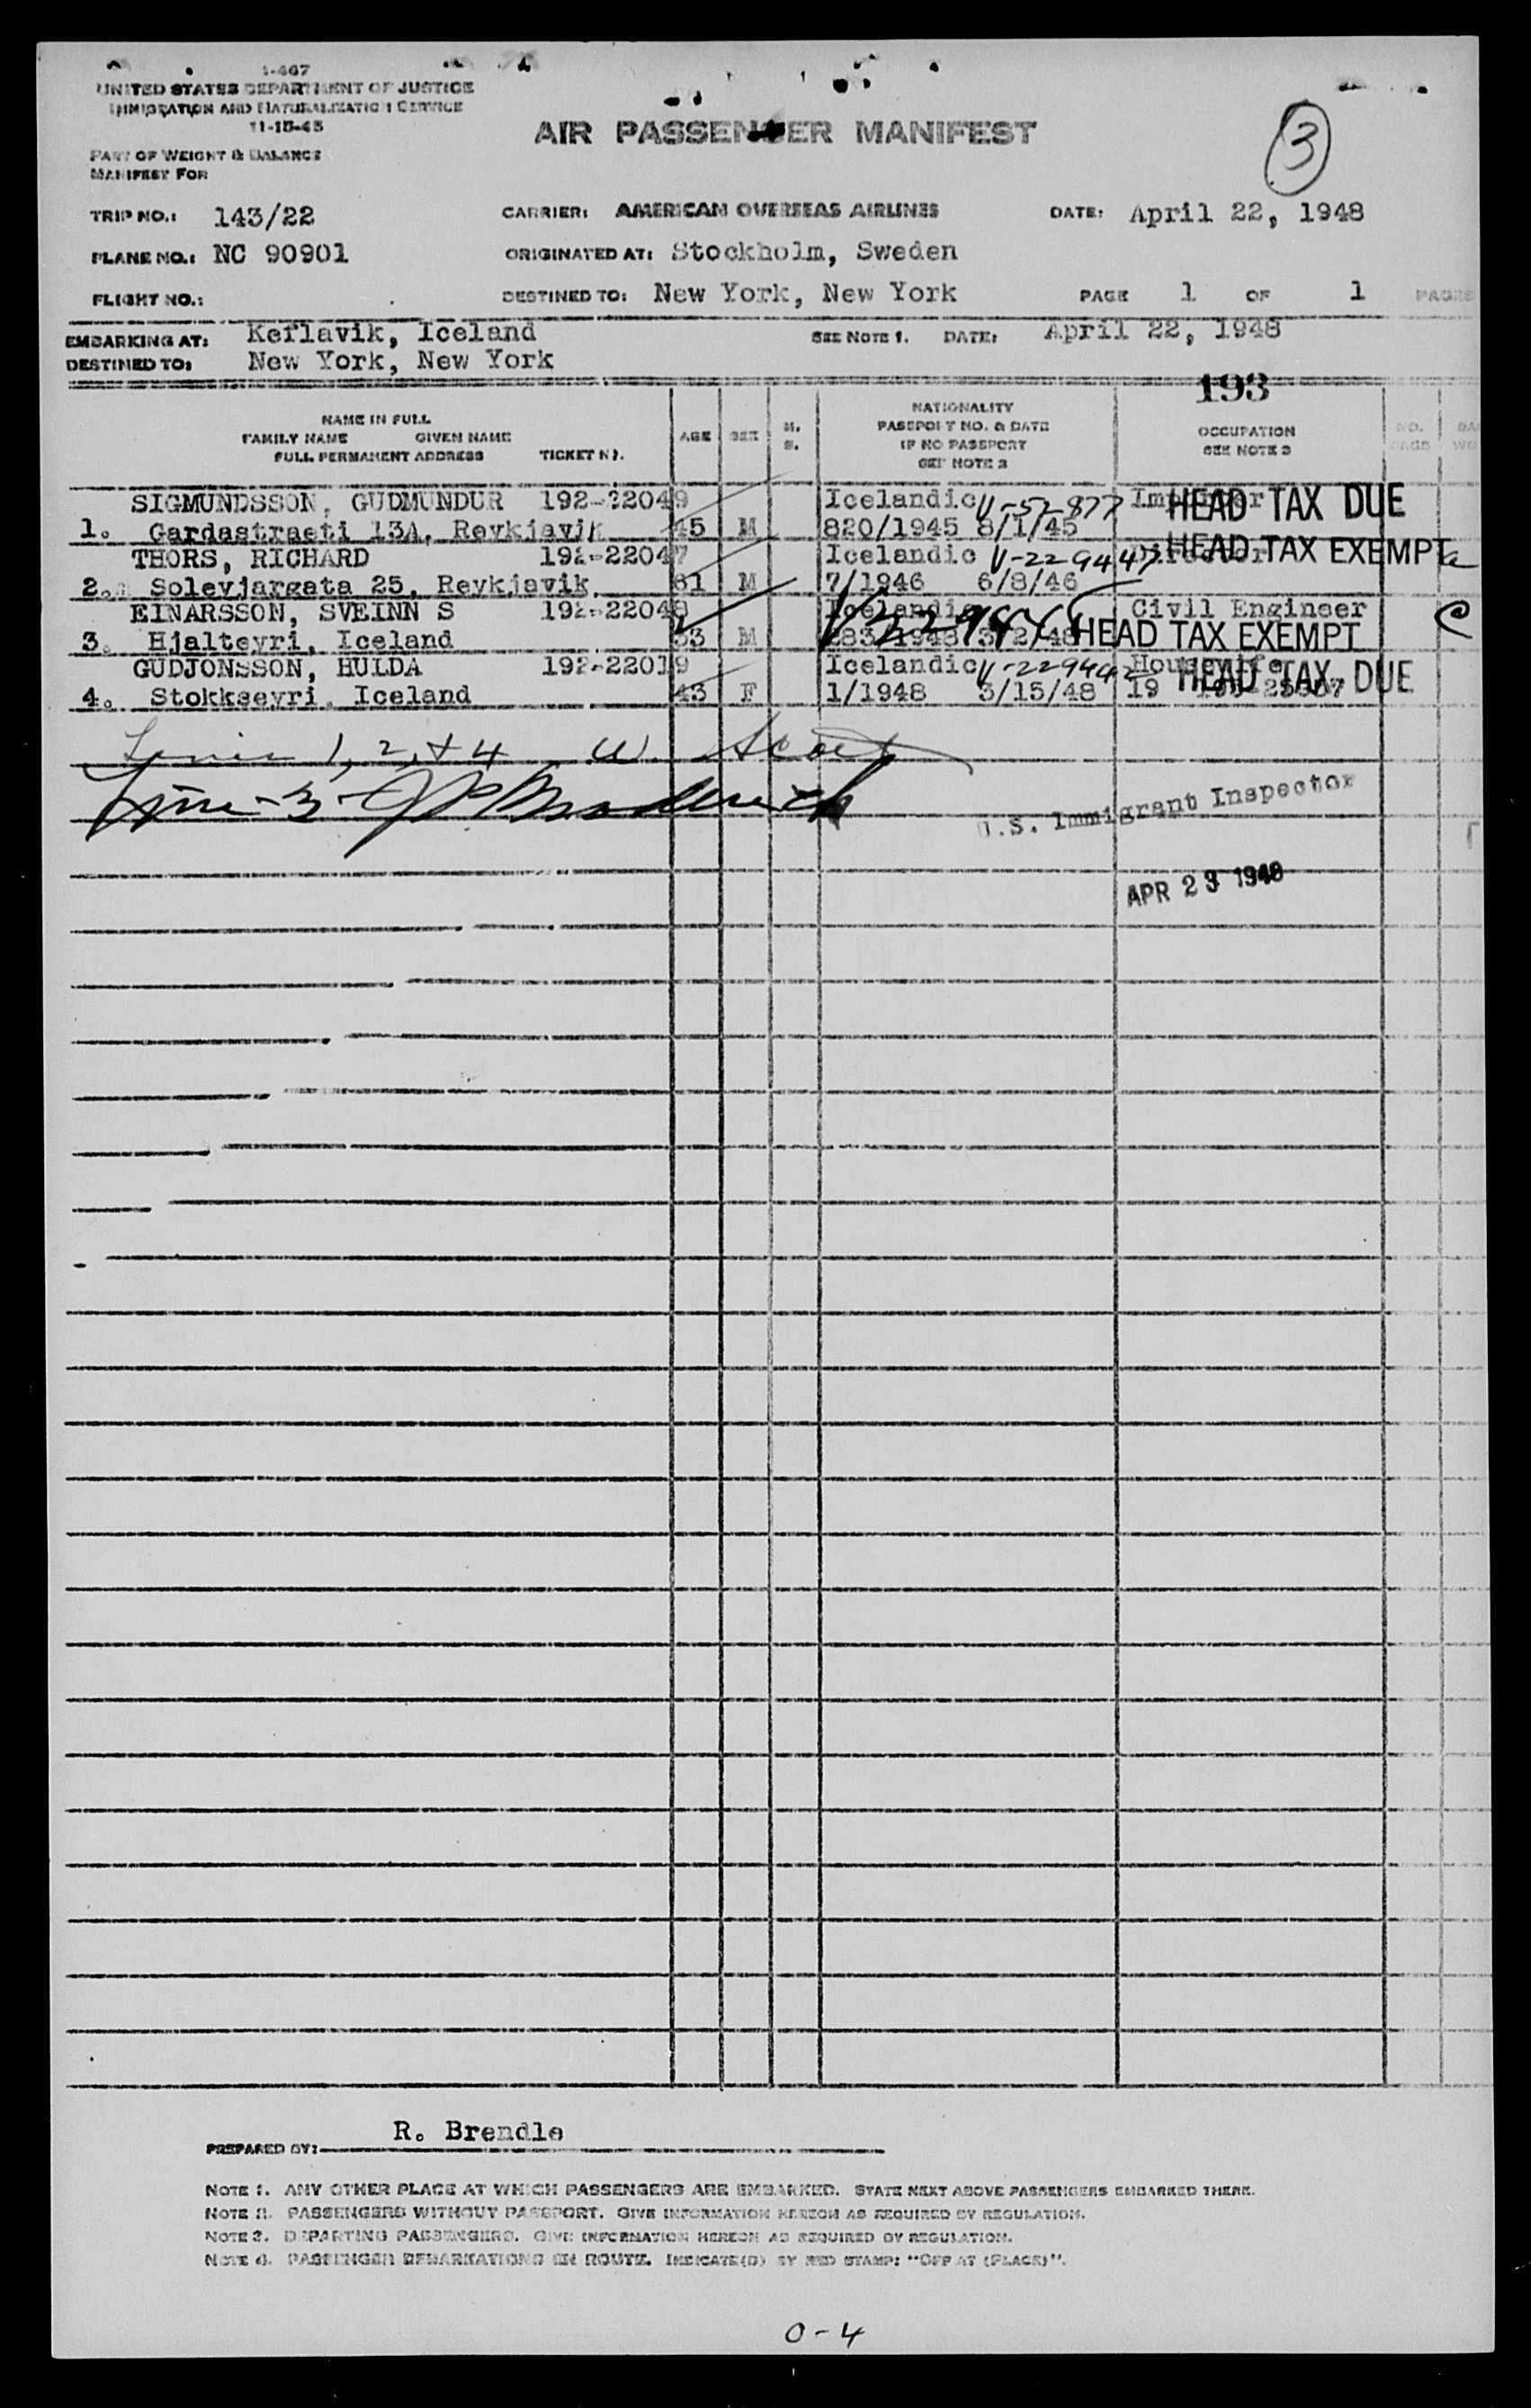 1-467
UNITED STATES DEPARTMENT OF JUSTICE
IMMIGRATION AND NATURALIZATION SERVICE
11-15-45
AIR PASSENGER MANIFEST
3
PART OF WEIGHT & BALANCE
MANIFEST FOR
TRIP NO.: 143/22 CARRIER: AMERICAN OVERSEAS AIRLINES DATE: April 22, 1948
PLANE NO.: NC 90901 ORIGINATED AT: Stockholm, Sweden
FLIGHT NO.: DESTINED TO: New York, New York PAGE 1 OF 1 PAGES
EMBARKING AT: Keflavik, Iceland SEE NOTE 1. DATE: April 22, 1948
DESTINED TO: New York, New York
193
NAME IN FULL
FAMILY NAME GIVEN NAME
FULL PERMANENT ADDRESS TICKET NO.
AGE SEX M. S.
NATIONALITY
PASSPORT NO. & DATE
IF NO PASSPORT
SEE NOTE 2
OCCUPATION
SEE NOTE 3
NO.
SIGMUNDSSON, GUDMUNDUR 192-22049 Icelandic V-57-877 HEAD TAX DUE
1. Gardastraeti 13A, Reykjavik 45 M 820/1945 8/1/45
THORS, RICHARD 192-22047 Icelandic HEAD TAX EXEMPT
2. Soleyjargata 25, Reykjavik. 61 M 7/1946 6/8/46
EINARSSON, SVEINN S 192-22048 Icelandic Civil Engineer
3. Hjalteyri, Iceland 33 M HEAD TAX EXEMPT
GUDJONSSON, HULDA 192-22019 Icelandic V-229442 Housewife
4. Stokkseyri, Iceland 43 F 1/1948 3/15/48 HEAD TAX DUE
Lines 1, 2, & 4 W. Scott
Line - 3 -
U.S. Immigrant Inspector
APR 23 1948
PREPARED BY: R. Brendle
NOTE 1. ANY OTHER PLACE AT WHICH PASSENGERS ARE EMBARKED. STATE NEXT ABOVE PASSENGERS EMBARKED THERE.
NOTE 2. PASSENGERS WITHOUT PASSPORT. GIVE INFORMATION HEREON AS REQUIRED BY REGULATION.
NOTE 3. DEPARTING PASSENGERS. GIVE INFORMATION HEREON AS REQUIRED BY REGULATION.
NOTE 4. PASSENGER DEBARKATIONS EN ROUTE. INDICATE(D) BY RED STAMP: "OFF AT (PLACE)".
0-4